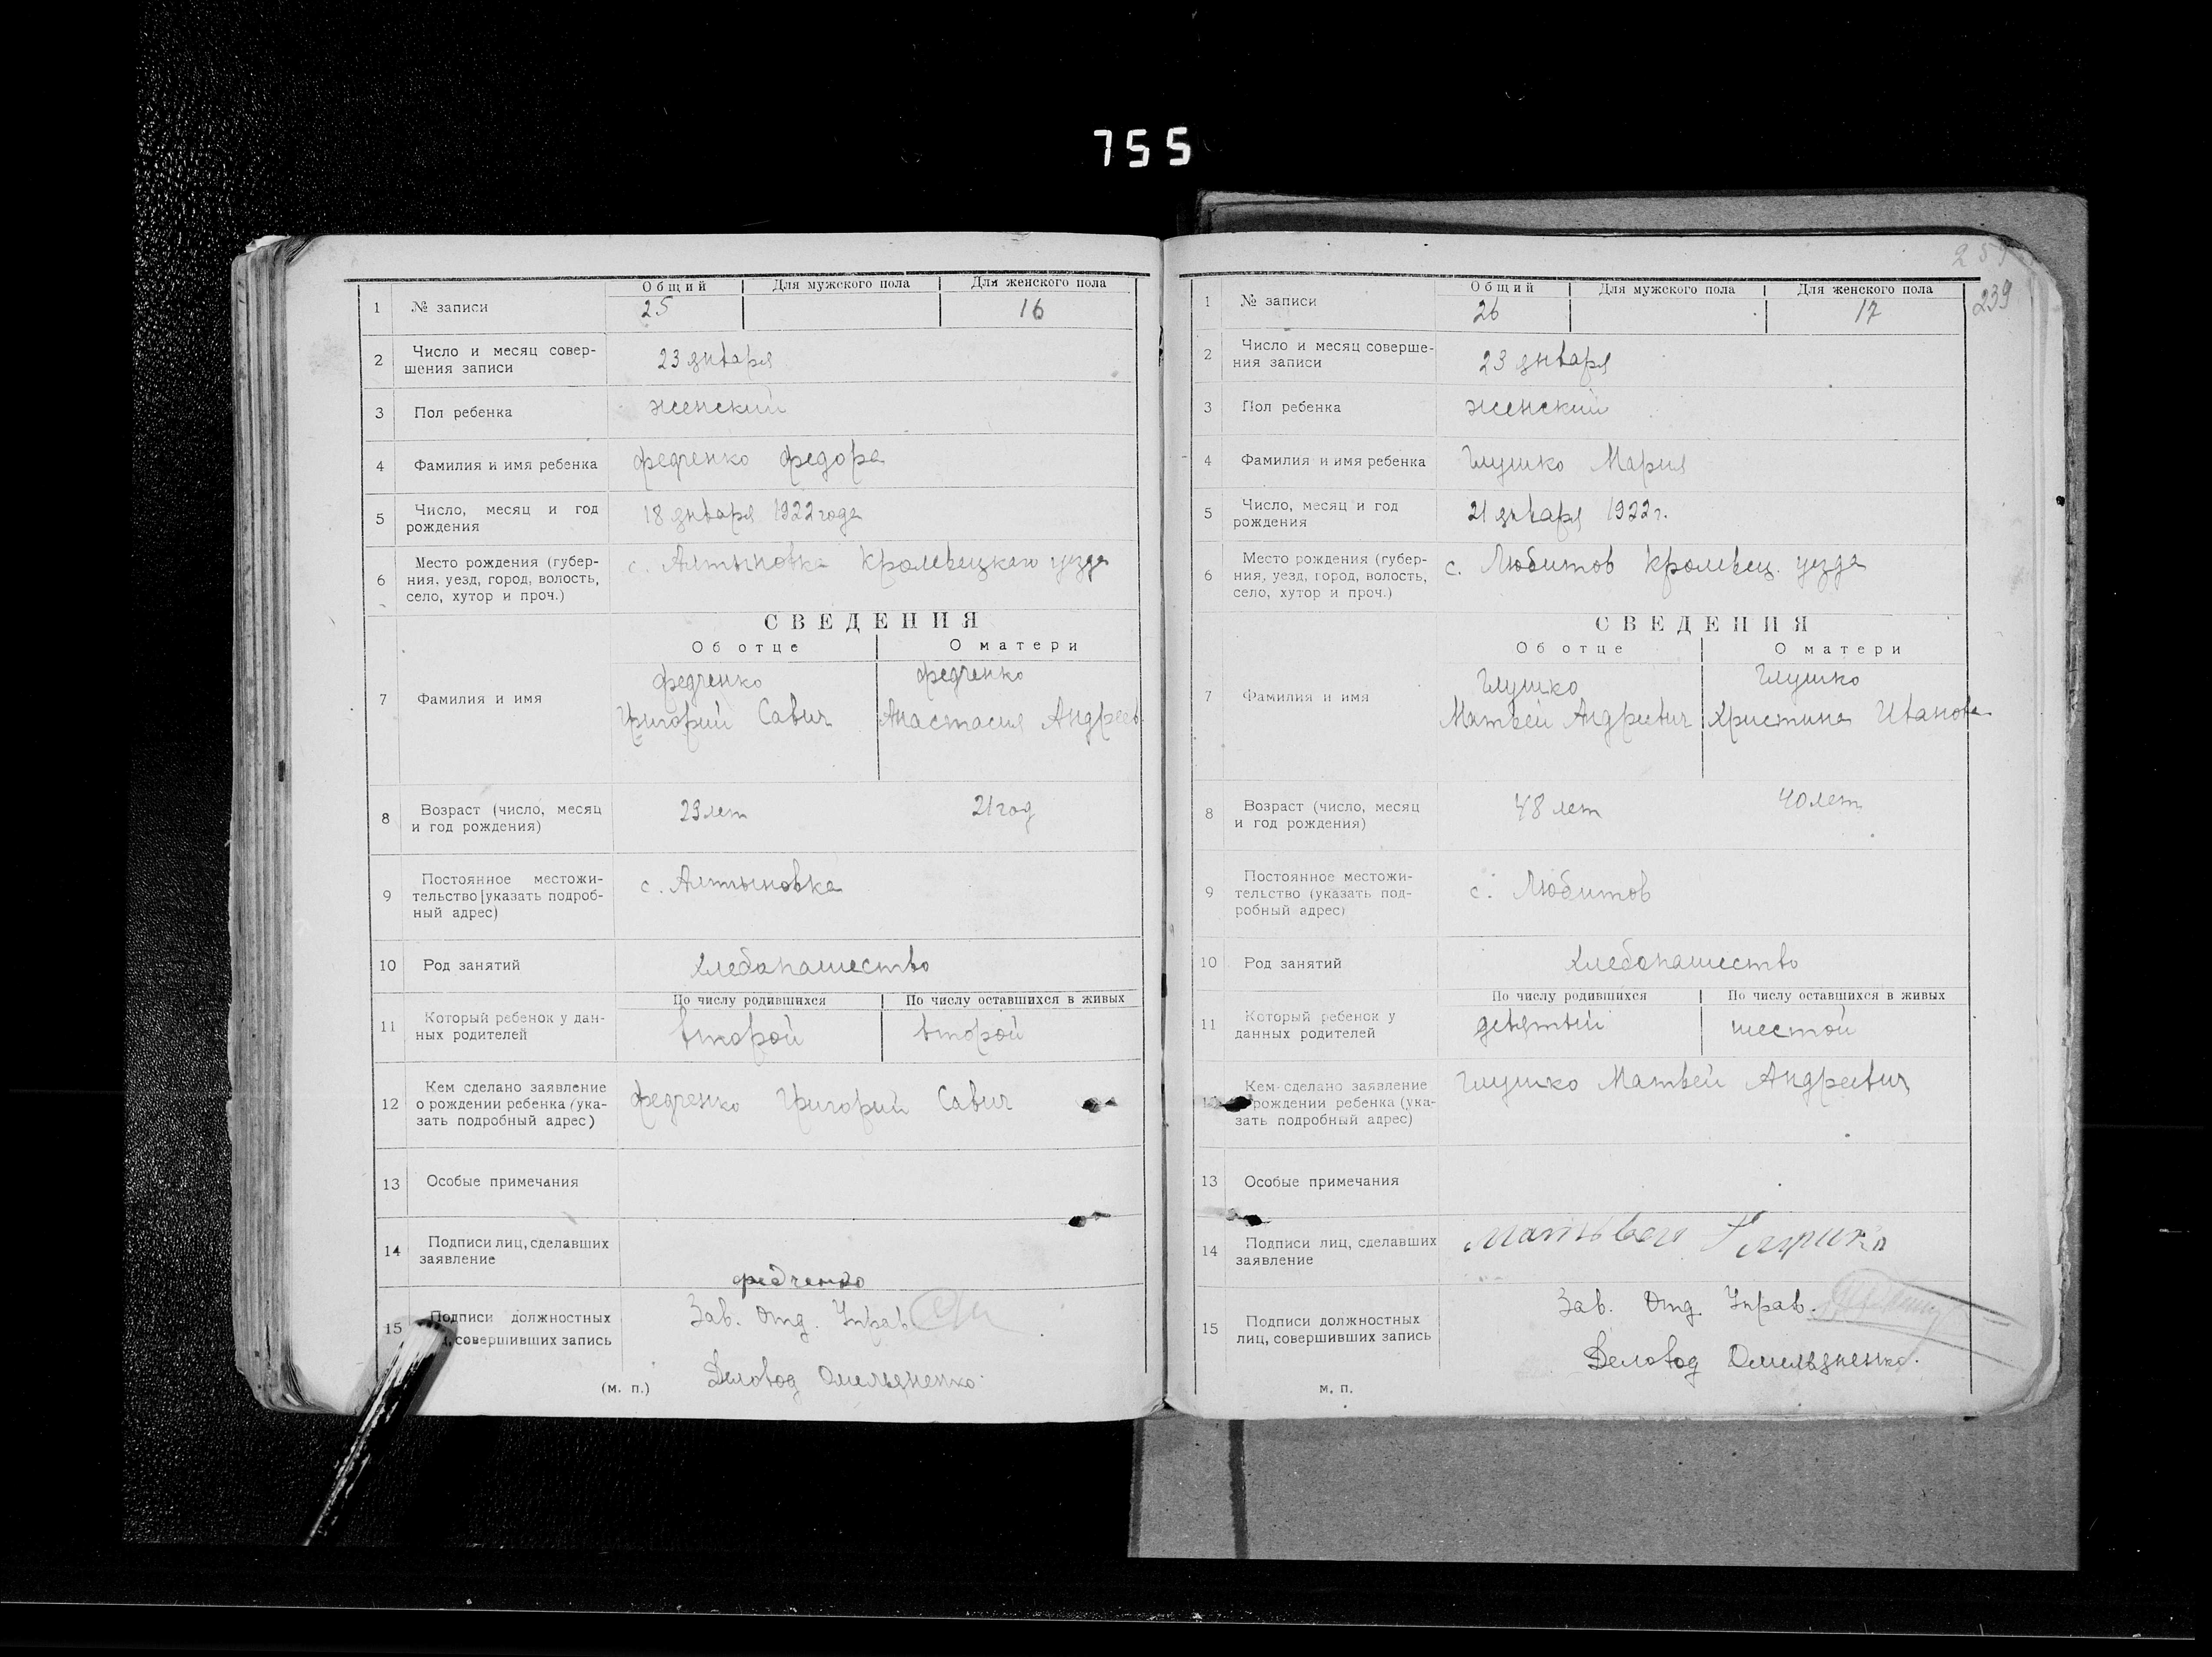 755
Общий Для мужского пола Для женского пола
1 № записи 25 16
2 Число и месяц совер-
шения записи 23 января
3 Пол ребенка женский
4 Фамилия и имя ребенка Федченко Федора
5 Число, месяц и год
рождения 18 января 1922 года
6 Место рождения (губер-
ния, уезд, город, волость,
село, хутор и проч.) с. Алтыновка Кролевецкого уезда
СВЕДЕНИЯ
Об отце О матери
7 Фамилия и имя
Федченко Федченко
Григорий Савич Анастасия Андреев
8 Возраст (число, месяц
и год рождения) 29 лет 21 год
9 Постоянное местожи-
тельство [указать подроб-
ный адрес) с. Алтыновка
10 Род занятий хлебопашество
По числу родившихся По числу оставшихся в живых
11 Который ребенок у дан-
ных родителей второй второй
12 Кем сделано заявление
о рождении ребенка (ука-
зать подробный адрес) Федченко Григорий Савич
13 Особые примечания
14 Подписи лиц, сделавших
заявление
Федченко
15 Подписи должностных
совершивших запись
Зав. Отд. Управ.
Деловод Омельяненко.
(м. п.)
239
Общий Для мужского пола Для женского пола
1 № записи 26 17
2 Число и месяц соверше-
ния записи 23 января
3 Пол ребенка женский
4 Фамилия и имя ребенка Глушко Мария
5 Число, месяц и год
рождения 21 января 1922 г.
6 Место рождения (губер-
ния, уезд, город, волость,
село, хутор и проч.) с. Любитов Кролевец. уезда
СВЕДЕНИЯ
Об отце О матери
7 Фамилия и имя
Глушко Глушко
Матвей Андреевич Христина Иванова
8 Возраст (число, месяц
и год рождения) 48 лет 40 лет
9 Постоянное местожи-
тельство (указать под-
робный адрес) с. Любитов
10 Род занятий хлебопашество
По числу родившихся По числу оставшихся в живых
11 Который ребенок у
данных родителей девятый шестой
Кем сделано заявление
рождении ребенка (ука-
зать подробный адрес) Глушко Матвей Андреевич
13 Особые примечания
14 Подписи лиц, сделавших
заявление Матвей Глушко
15 Подписи должностных
лиц, совершивших запись
Зав. Отд. Управ.
Деловод Омельяненко.
м. п.